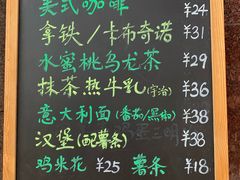 美式咖啡 ¥24
拿铁/卡布奇诺 ¥31
水蜜桃乌龙茶 ¥29
抹茶热牛乳(宇治) ¥36
意大利面(番茄/黑椒) ¥38
汉堡(配薯条) ¥38
鸡米花 ¥25 薯条 ¥18